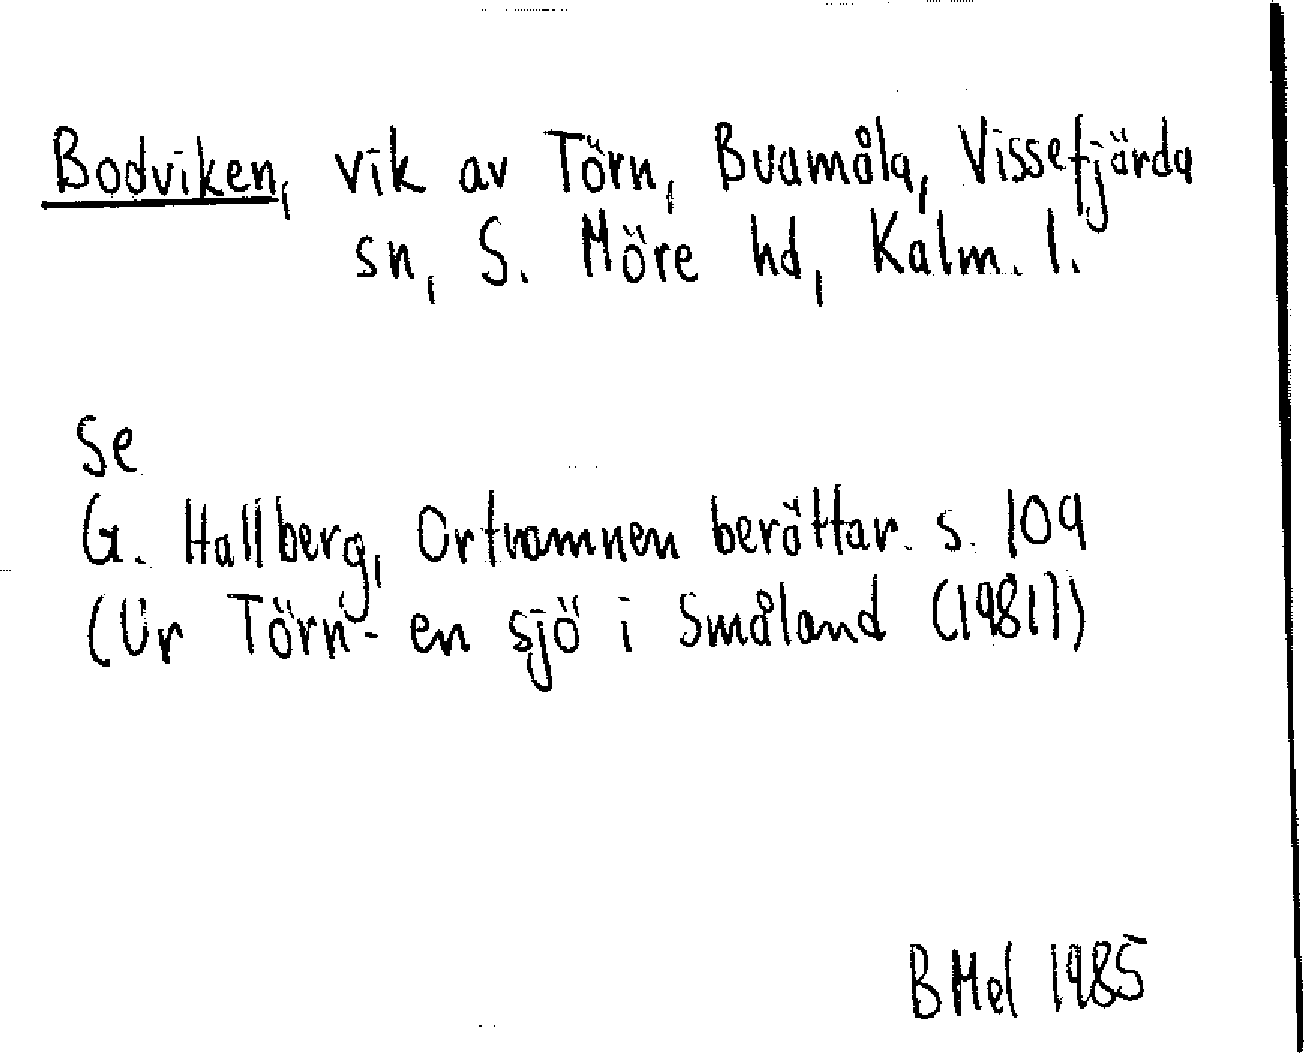 Bodviken, vik av Törn, Buamåla, Vissefjärda
sn, S. Möre hd, Kalm. l.
Se
G. Hallberg, Ortnamnen berättar. s. 109
(Ur Törn - en sjö i Småland (1981))
BMel 1985